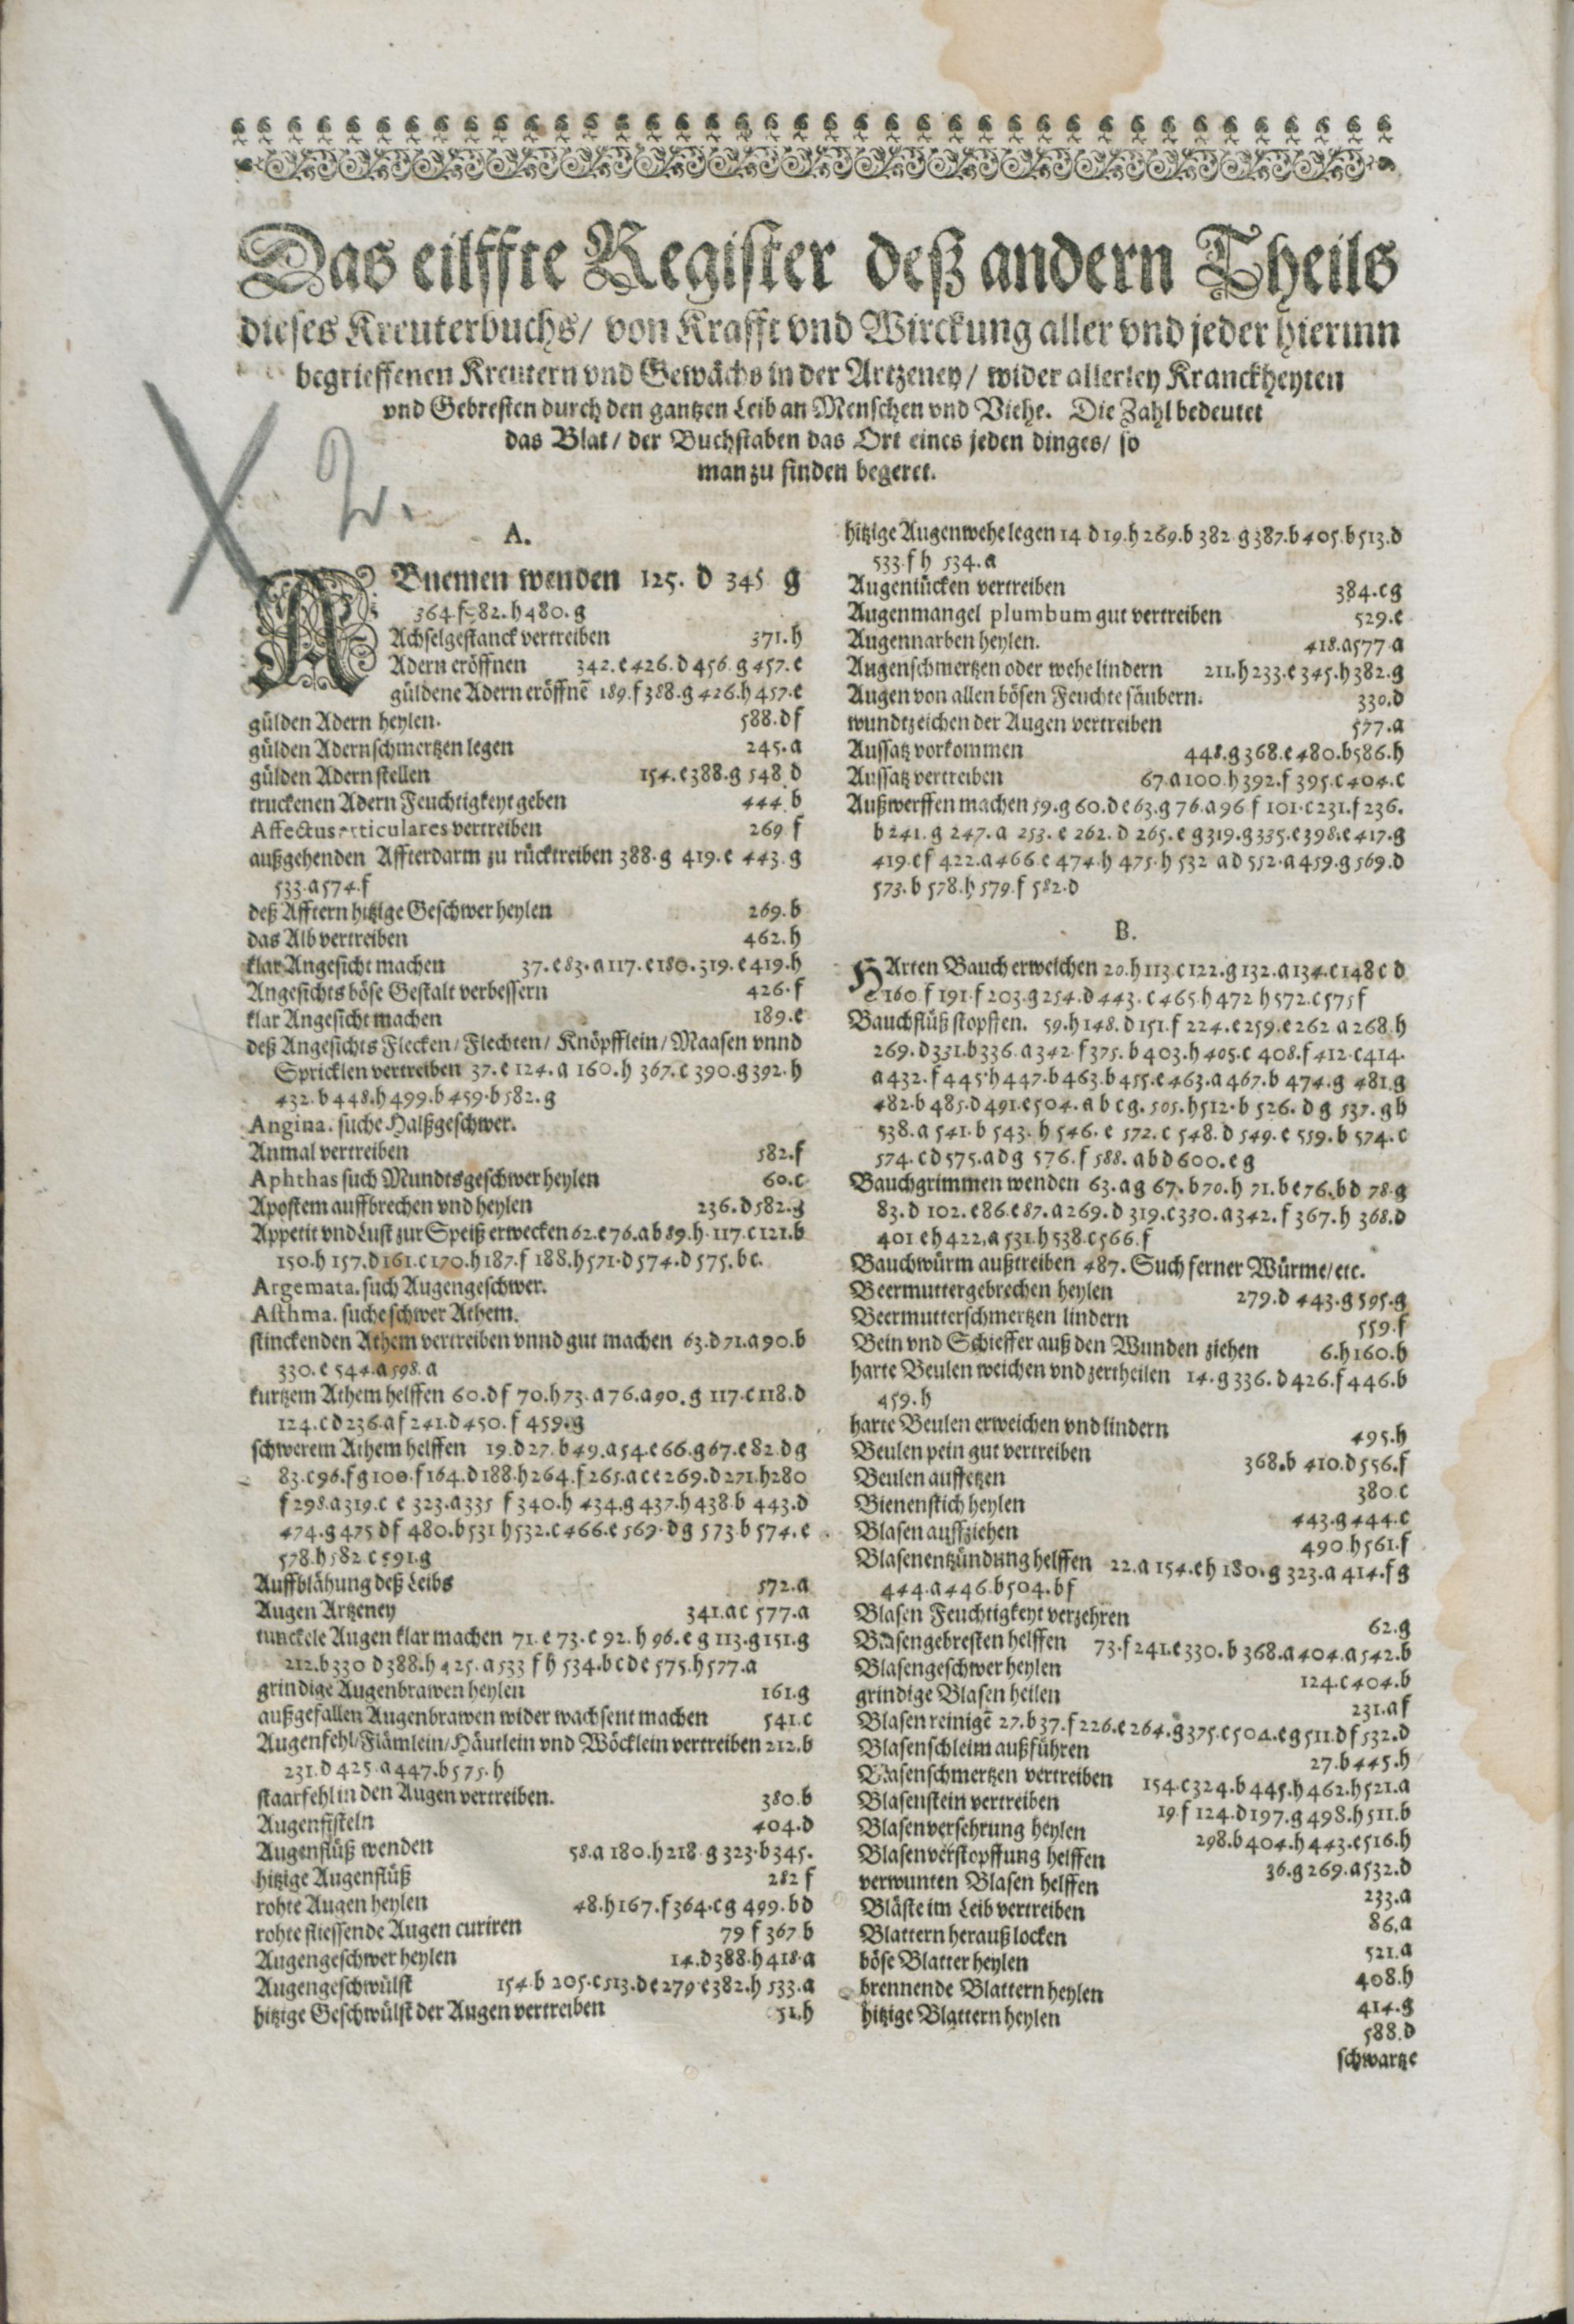 Das eilffte Register deß andern Theils
dieses Kreuterbuchs/ von Krafft vnd Wirckung aller vnd jeder hierinn
begrieffenen Kreutern vnd Gewächs in der Artzeney/ wider allerley Kranckheyten
vnd Gebresten durch den gantzen Leib an Menschen vnd Viehe. Die Zahl bedeutet
das Blat/ der Buchstaben das Ort eines jeden dinges/ so
man zu finden begeret.
2.
A.
ABnemen wenden 125. d 345 g
364 f 82. h 480. g
Achselgestanck vertreiben 371. h
Adern eröffnen 342. e 426. d 456. g 457. e
güldene Adern eröffnē 189. f 388. g 426. h 457. e
gülden Adern heylen. 588. d f
gülden Adernschmertzen legen 245. a
gülden Adern stellen 154. e 388. g 548 d
truckenen Adern Feuchtigkeyt geben 444. b
Affectus articulares vertreiben 269 f
außgehenden Affterdarm zu rücktreiben 388. g 419. e 443. g
533. a 574. f
deß Afftern hitzige Geschwer heylen 269. b
das Alb vertreiben 462. h
klar Angesicht machen 37. e 83. a 117. e 180. 319. e 419. h
Angesichts böse Gestalt verbessern 426. f
klar Angesicht machen 189. e
deß Angesichts Flecken/ Flechten/ Knöpfflein/ Maasen vnnd
Spricklen vertreiben 37. e 124. a 160. h 367. c 390. g 392. h
432. b 448. h 499. b 459. b 582. g
Angina. suche Halßgeschwer.
Anmal vertreiben 582. f
Aphthas such Mundtsgeschwer heylen 60. c
Apostem auffbrechen vnd heylen 236. d 582. g
Appetit vnd Lust zur Speiß erwecken 62. e 76. a b 89. h. 117. c 121. b
150. h 157. d 161. c 170. h 187. f 188. h 571. d 574. d 575. b c.
Argemata. such Augengeschwer.
Asthma. suche schwer Athem.
stinckenden Athem vertreiben vnnd gut machen 63. d 71. a 90. b
330. e 544. a 598. a
kurtzem Athem helffen 60. d f 70. h 73. a 76. a 90. g 117. c 118. d
124. c d 236. a f 241. d 450. f 459. g
schwerem Athem helffen 19. d 27. b 49. a 54. e 66. g 67. e 82. d g
83. c 96. f g 100. f 164. d 188. h 264. f 265. a c e 269. d 271. h 280
f 298. a 319. c e 323. a 335 f 340. h 434. g 437. h 438 b 443. d
474. g 475 d f 480. b 531 h 532. c 466. e 569. d g 573 b 574. e
578. h 582 c 591. g
Auffblähung deß Leibs 572. a
Augen Artzeney 341. a c 577. a
tunckele Augen klar machen 71. e 73. c 92. h 96. e g 113. g 151. g
212. b 330 d 388. h 425. a 533 f h 534. b c d e 575. h 577. a
grindige Augenbrawen heylen 161. g
außgefallen Augenbrawen wider wachsent machen 541. c
Augenfehl/ Flämlein/ Häutlein vnd Wöcklein vertreiben 212. b
231. d 425 a 447. b 575. h
staarfehl in den Augen vertreiben. 380. b
Augenfisteln 404. d
Augenflüß wenden 58. a 180. h 218. g 323. b 345.
hitzige Augenflüß 282 f
rohte Augen heylen 48. h 167. f 364. c g 499. b d
rohte fliessende Augen curiren 79 f 367 b
Augengeschwer heylen 14. d 388. h 418. a
Augengeschwülst 154. b 205. c 513. d e 279 e 382. h 533. a
hitzige Geschwülst der Augen vertreiben 51. h
hitzige Augenwehe legen 14 d 19. h 269. b 382 g 387. b 405. b 513. d
533. f h 534. a
Augenjücken vertreiben 384. c g
Augenmangel plumbum gut vertreiben 529. e
Augennarben heylen. 418. a 577 a
Augenschmertzen oder wehe lindern 211. h 233. e 345. h 382. g
Augen von allen bösen Feuchte säubern. 330. d
wundtzeichen der Augen vertreiben 577. a
Aussatz vorkommen 448. g 368. e 480. b 586. h
Aussatz vertreiben 67. a 100. h 392. f 395. c 404. c
Außwerffen machen 59. g 60. d e 63. g 76. a 96 f 101. c 231. f 236.
b 241. g 247. a 253. e 262. d 265. e g 319. g 335. e 398. e 417. g
419. e f 422. a 466 e 474. h 475. h 532 a d 552. a 459. g 569. d
573. b 578. h 579. f 582. d
B.
HArten Bauch erweichen 20. h 113. c 122. g 132. a 134. c 148 c d
e 160 f 191. f 203. g 254. d 443. c 465. h 472 h 572. c 575 f
Bauchflüß stopffen. 59. h 148. d 151. f 224. e 259. e 262 a 268. h
269. d 331. b 336. a 342. f 375. b 403. h 405. c 408. f 412. c 414.
a 432. f 445. h 447. b 463. b 455. e 463. a 467. b 474. g 481. g
482. b 485. d 491. e 504. a b c g. 505. h 512. b 526. d g 537. g b
538. a 541. b 543. h 546. e 572. c 548. d 549. e 559. b 574. c
574. c d 575. a d g 576. f 588. a b d 600. e g
Bauchgrimmen wenden 63. a g 67. b 70. h 71. b e 76. b d 78. g
83. d 102. e 86. e 87. a 269. d 319. c 330. a 342. f 367. h 368. d
401 e h 422, a 531. h 538. c 566. f
Bauchwürm außtreiben 487. Such ferner Würme/ etc.
Beermuttergebrechen heylen 279. d 443. g 595. g
Beermutterschmertzen lindern 559. f
Bein vnd Schieffer auß den Wunden ziehen 6. h 160. b
harte Beulen weichen vnd zertheilen 14. g 336. d 426. f 446. b
459. h
harte Beulen erweichen vnd lindern 495. h
Beulen pein gut vertreiben 368. b 410. d 556. f
Beulen auffetzen 380 c
Bienenstich heylen 443. g 444. c
Blasen auffziehen 490 h 561. f
Blasenentzündung helffen 22. a 154. e h 180. g 323. a 414. f g
444. a 446. b 504. b f
Blasen Feuchtigkeyt verzehren 62. g
Blasengebresten helffen 73. f 241. e 330. b 368. a 404. a 542. b
Blasengeschwer heylen 124. c 404. b
grindige Blasen heilen 231. a f
Blasen reinigē 27. b 37. f 226. e 264. g 375. c 504. e g 511. d f 532. d
Blasenschleim außführen 27. b 445. h
Blasenschmertzen vertreiben 154. c 324. b 445. h 462. h 521. a
Blasenstein vertreiben 19. f 124. d 197. g 498. h 511. b
Blasenversehrung heylen 298. b 404. h 443. e 516. h
Blasenverstopffung helffen 36. g 269. a 532. d
verwunten Blasen helffen 233. a
Bläste im Leib vertreiben 86, a
Blattern herauß locken 521. a
böse Blatter heylen 408. h
brennende Blattern heylen 414. g
hitzige Blattern heylen 588. d
schwartze